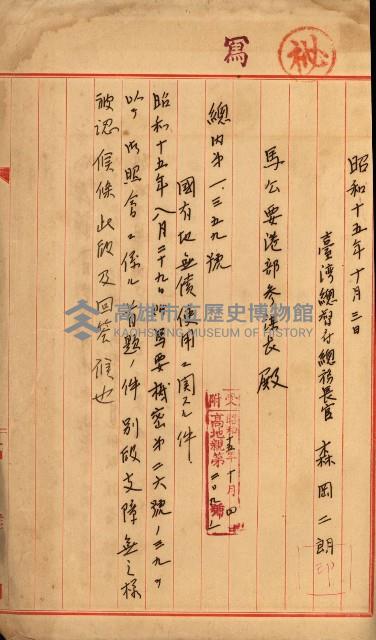 秘
寫
昭和十五年十月三日
臺灣總督府總務長官 森岡二朗
印
馬公要港部參謀長殿
總內第一三五九號
國有地無償使用ニ関スル件
昭和十五年八月二十九日附馬要機密第二六號ノ三九ヲ
以テ御照會ニ係ル首題ノ件別段支障無之様
被認候條此段及回答候也
受附
昭和十五年十月四日
高地親第
號
高雄市立歷史博物館
KAOHSIUNG MUSEUM OF HISTORY